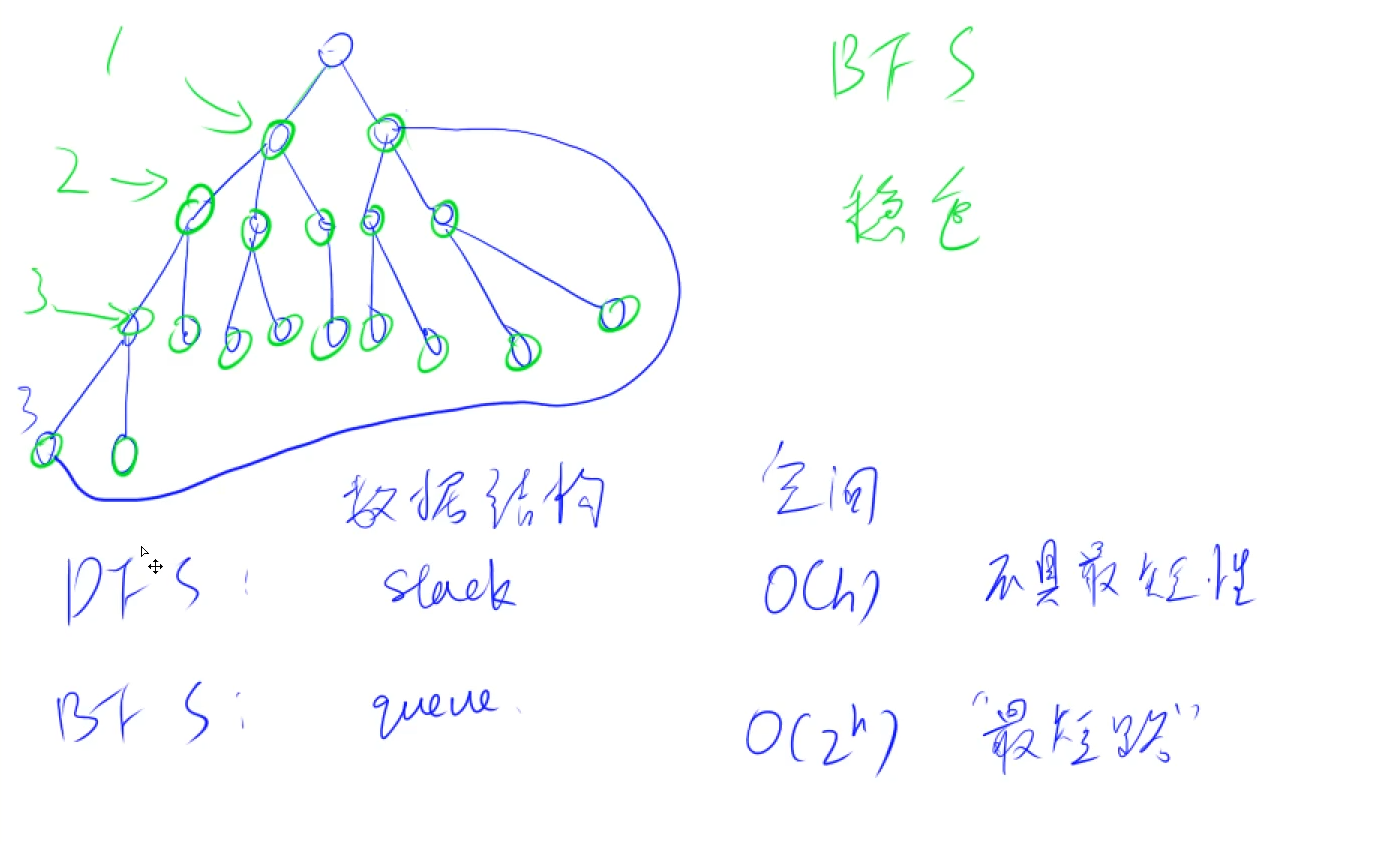 1
BFS
2
稳重
3
3
数据结构 空间
DFS: stack O(h) 不具最短性
BFS: queue. O(2^h) "最短路"